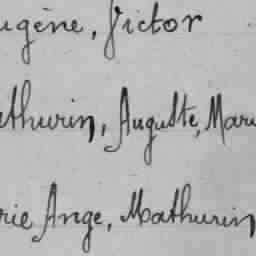 ugène, Victor
athurin, Auguste, Mari
rie Ange, Mathurin